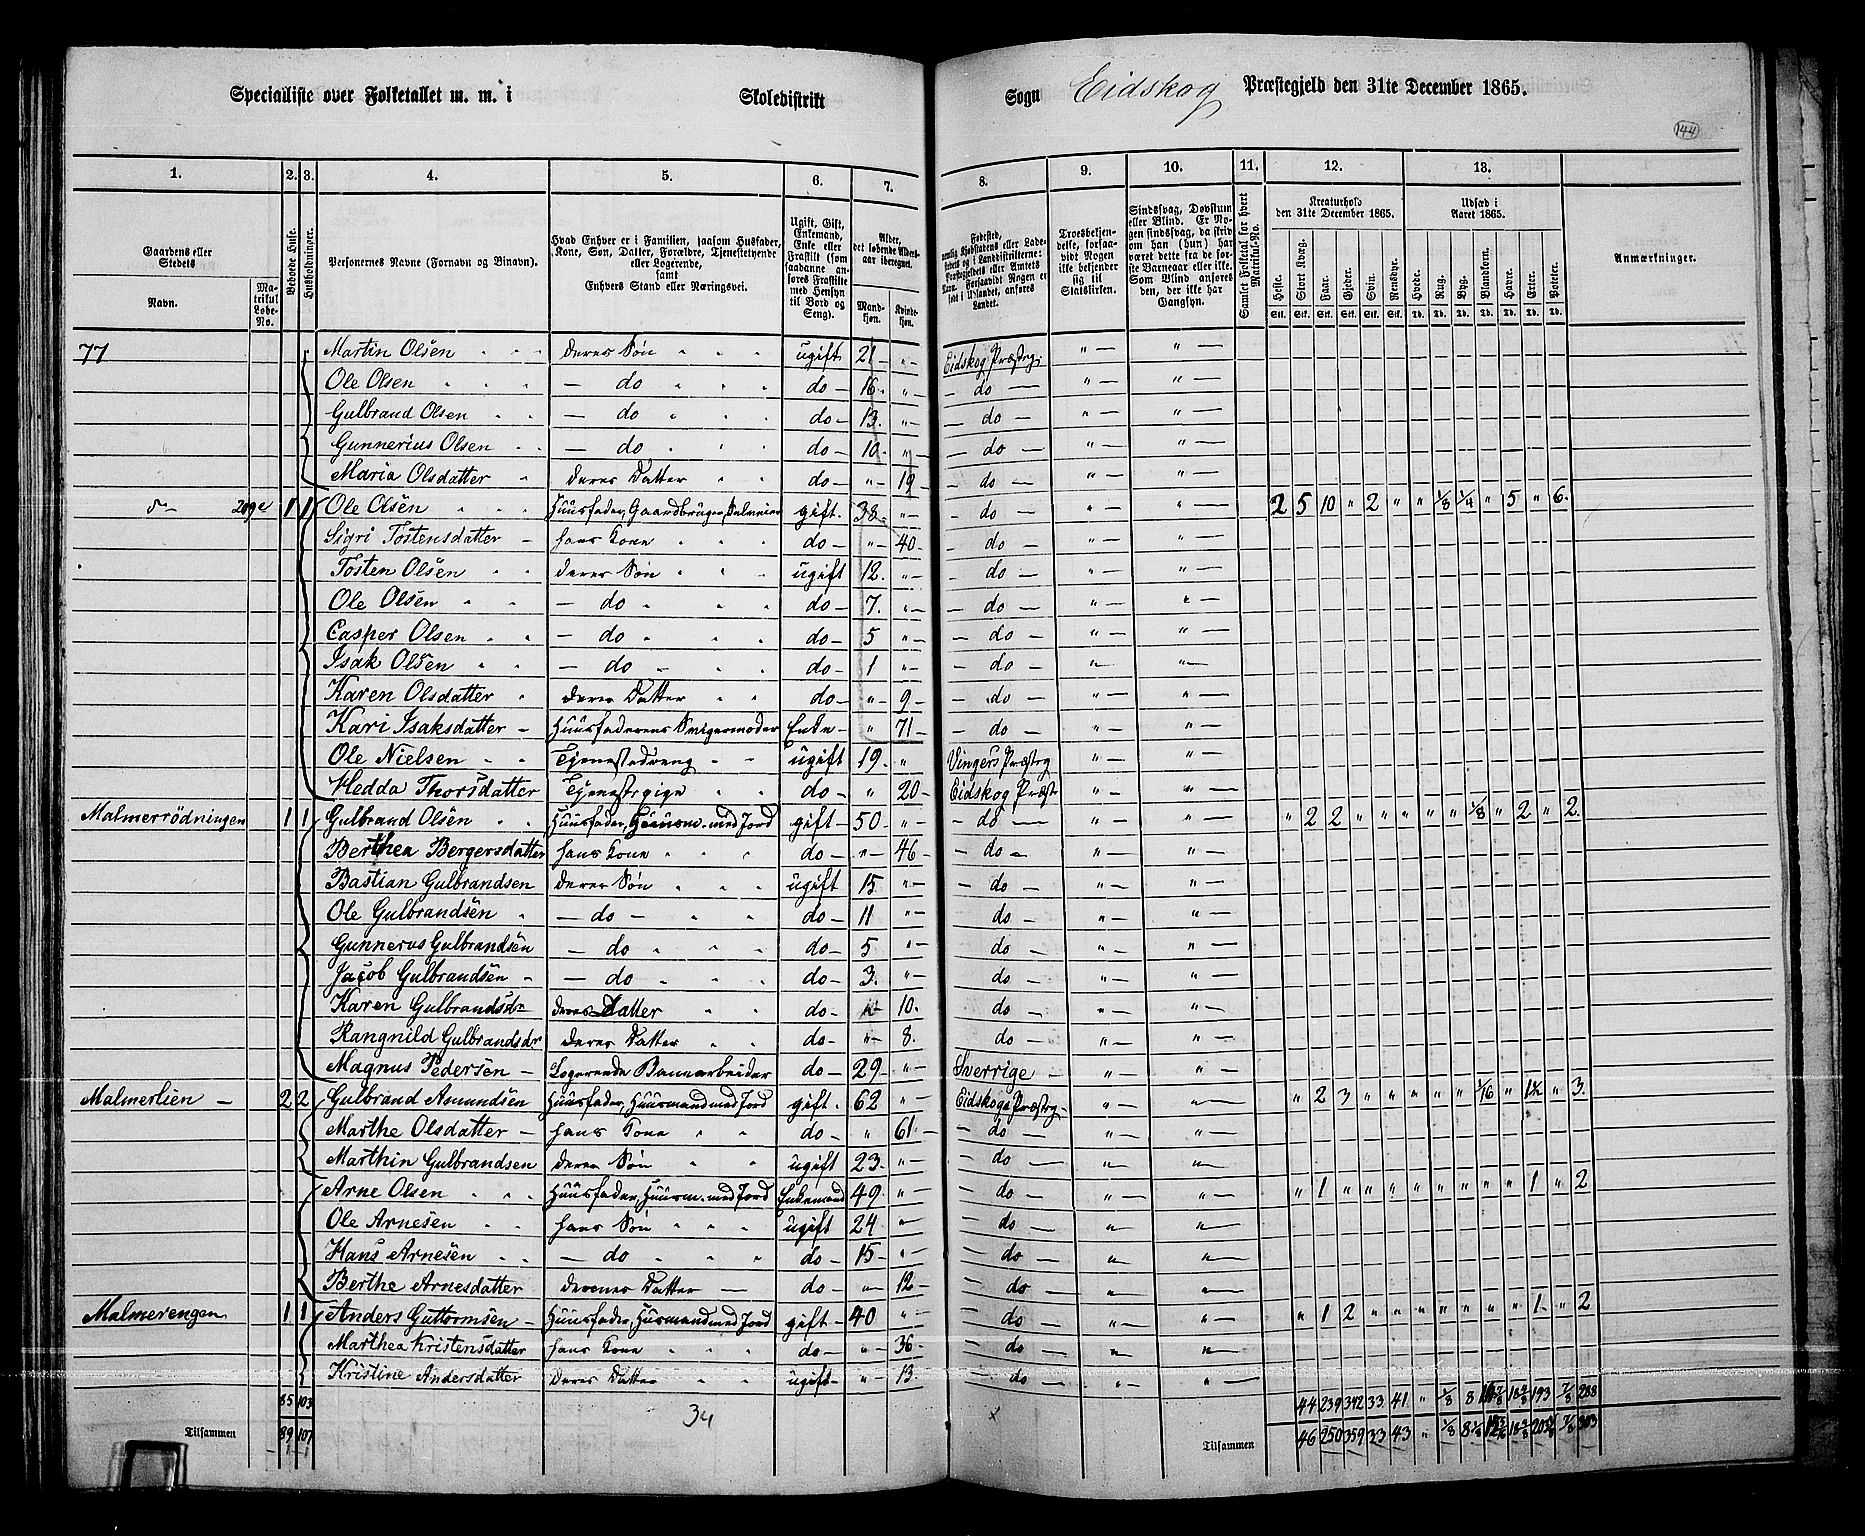 Specialliste over Folketallet m. m. i Skoledistrikt Sogn Eidskog Præstegjeld den 31te December 1865.
144
1. 2. 3. 4. 5. 6. 7. 8. 9. 10. 11. 12. 13.
Gaardens eller Stedets
Navn.
Matrikul Løbe-No.
Beboede Huse.
Husholdninger.
Personernes Navne (Fornavn og Binavn).
Hvad Enhver er i Familien, saasom Husfader, Kone, Søn, Datter, Forældre, Tjenestetyende eller Logerende, samt Enhvers Stand eller Næringsvei.
Ugift, Gift, Enkemand, Enke eller Fraskilt (som saadanne anføres Fraskilte med Hensyn til Bord og Seng).
Alder, det løbende Aldersaar iberegnet.
Mandkjøn. Kvindekjøn.
Fødested,
Troesbekjendelse, forsaavidt Nogen ikke bekjender sig til Statskirken.
Sindssvag, Døvstum eller Blind. Er Nogen sindssvag, da skriv om han (hun) har været dette fra de første Barneaar eller ikke. Som Blind anføres den, der ikke har Gangsyn.
Samlet Folketal for hvert Matrikul-No.
Kreaturhold den 31te December 1865.
Heste. Stort Kvæg. Faar. Gjeder. Svin. Rensdyr.
Udsæd i Aaret 1865.
Hvede. Rug. Byg. Blandkorn. Havre. Erter. Poteter.
Anmærkninger.
77 Martin Olsen deres Søn ugift 21 Eidskog Præstg.
Ole Olsen do do 16 do
Gulbrand Olsen do do 13 do
Gunnerius Olsen do do 10 do
Maria Olsdatter deres Datter do 19 do
do 209e 1 1 Ole Olsen Huusfader, Gaardbruger, Selveier gift 38 do 2 5 10 " 2 " " 1/8 1/4 " 5 " 6
Sigri Tostensdatter hans Kone do 40 do
Tosten Olsen deres Søn ugift 12 do
Ole Olsen do do 7 do
Casper Olsen do do 5 do
Isak Olsen do do 1 do
Karen Olsdatter deres Datter do 9 do
Kari Isaksdatter Huusfaderens Svigermoder Enke 71 do
Ole Nielsen Tjenestedreng ugift 19 Vingers Præstg
Hedda Thorsdatter Tjenestepige do 20 Eidskog Præst
Malmerrödningen 1 1 Gulbrand Olsen Huusfader, Huusm. med Jord gift 50 do " 2 2 " " " " " " 1/8 " 2 " 2
Berthea Bergersdatter hans Kone do 46 do
Bastian Gulbrandsen deres Søn ugift 15 do
Ole Gulbrandsen do do 11 do
Gunnerus Gulbrandsen do do 5 do
Jacob Gulbrandsen do do 3 do
Karen Gulbrandsdr deres Datter do 10 do
Rangnild Gulbrandsdr deres Datter do 8 do
Magnus Pedersen Logerende Banearbeider do 29 Sverrige
Malmerlien 2 2 Gulbrand Amundsen Huusfader, Huusmand med Jord gift 62 Eidskogs Præstg " 2 3 " " " " " " 1/16 " 1 1/4 " 3
Marthe Olsdatter hans Kone do 61 do
Marthin Gulbrandsen deres Søn ugift 23 do
Arne Olsen Huusfader, Huusm. med Jord Enkemand 49 do " 1 " " " " " " " " " 1 " 2
Ole Arnesen hans Søn ugift 24 do
Hans Arnesen do do 15 do
Berthe Arnesdatter Datter do 12 do
Malmerengen 1 1 Anders Guttormsen Huusfader, Husmand med Jord gift 40 do " 1 2 " " " " " " " " 1 " 2
Marthea Kristensdatter hans Kone do 36 do
Kristine Andersdatter deres Datter ugift 13 do
85 103 44 239 342 33 41 " 1/8 8 193 7/8 288
Tilsammen 89 107 34 Tilsammen 46 250 359 33 43 " 1/8 7/8 303